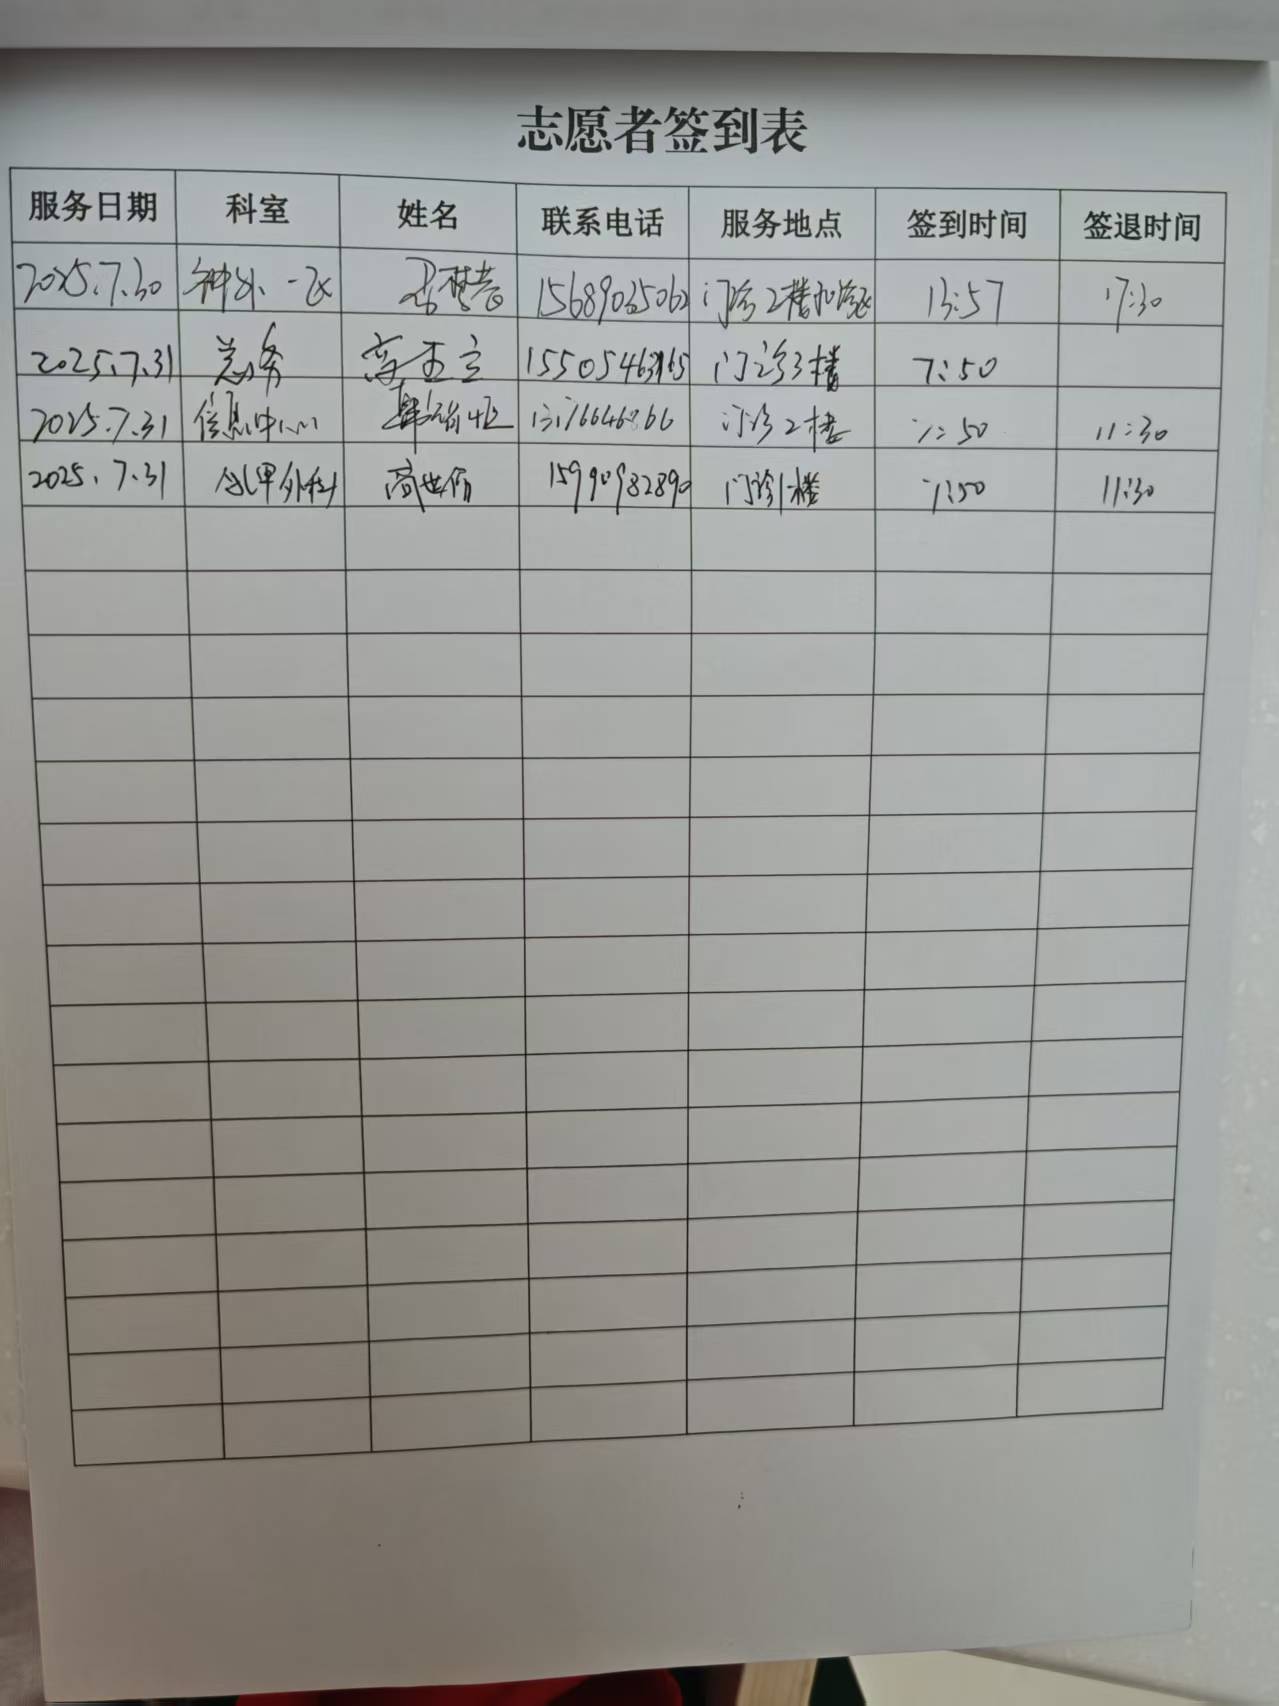 志愿者签到表
服务日期 科室 姓名 联系电话 服务地点 签到时间 签退时间
2025.7.30 神外一区 门诊2楼 13:57 17:30
2025.7.31 总务 门诊3楼 7:50
2025.7.31 信息中心 门诊2楼 7:50 11:30
2025.7.31 乳甲外科 15990982890 门诊1楼 7:50 11:30